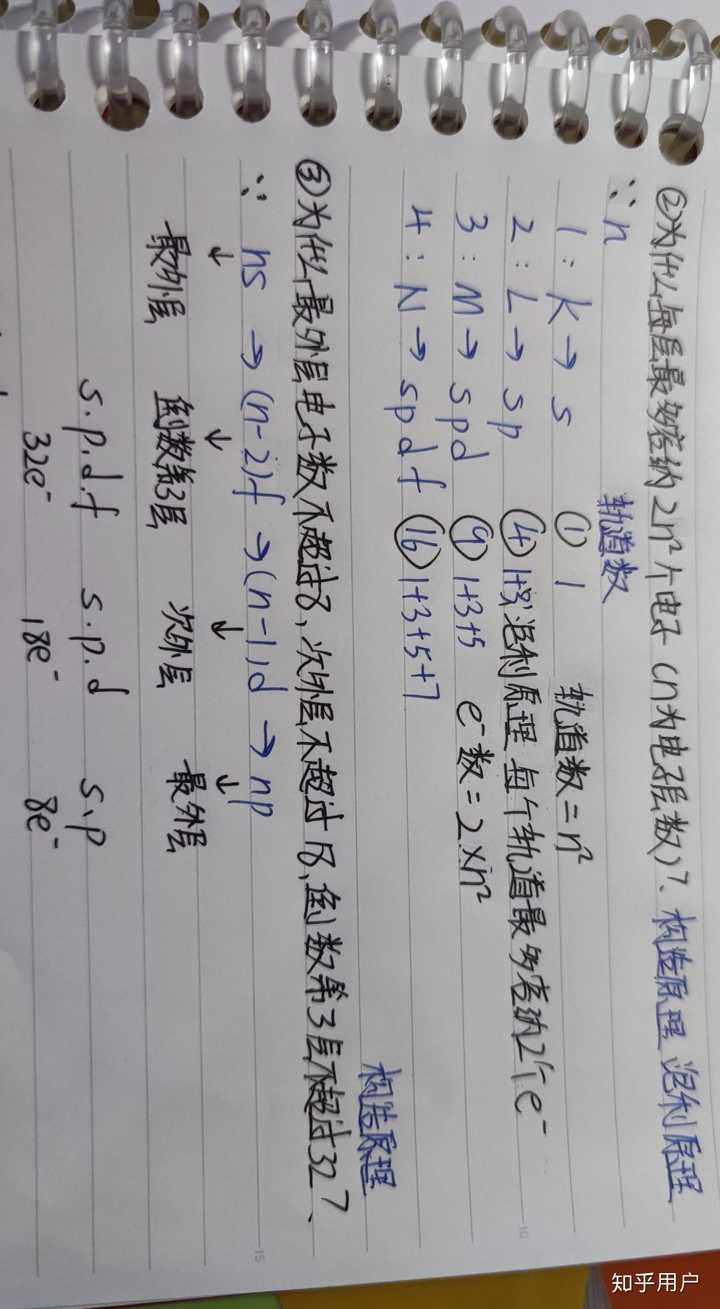 ②为什么每层最多容纳2n²个电子(n为电子层数)?、构造原理 泡利原理
∵ n 轨道数
1:K→s ① 1 轨道数=n²
2:L→sp ④ 1+3; 泡利原理 每个轨道最多容纳2个e⁻
3:M→spd ⑨ 1+3+5 e⁻数=2×n²
4:N→spdf ⑯ 1+3+5+7
构造原理
③为什么最外层电子数不超过8、次外层不超过18、倒数第3层不超过32?、
∵ ns → (n-2)f → (n-1)d → np
↓ ↓ ↓ ↓
最外层 倒数第3层 次外层 最外层
s.p.d.f s.p.d s.p
32e⁻ 18e⁻ 8e⁻
知乎用户